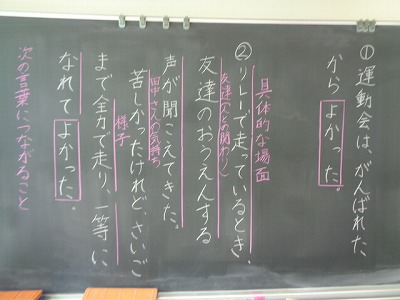 ①運動会は、がんばれた
からよかった。
具体的な場面
②リレーで走っているとき、
友達(人との関わり)
友達のおうえんする
声が聞こえてきた。
田中さんの気持ち
苦しかったけれど、さいご
様子
まで全力で走り、一等に
なれてよかった。
次の言葉につながること